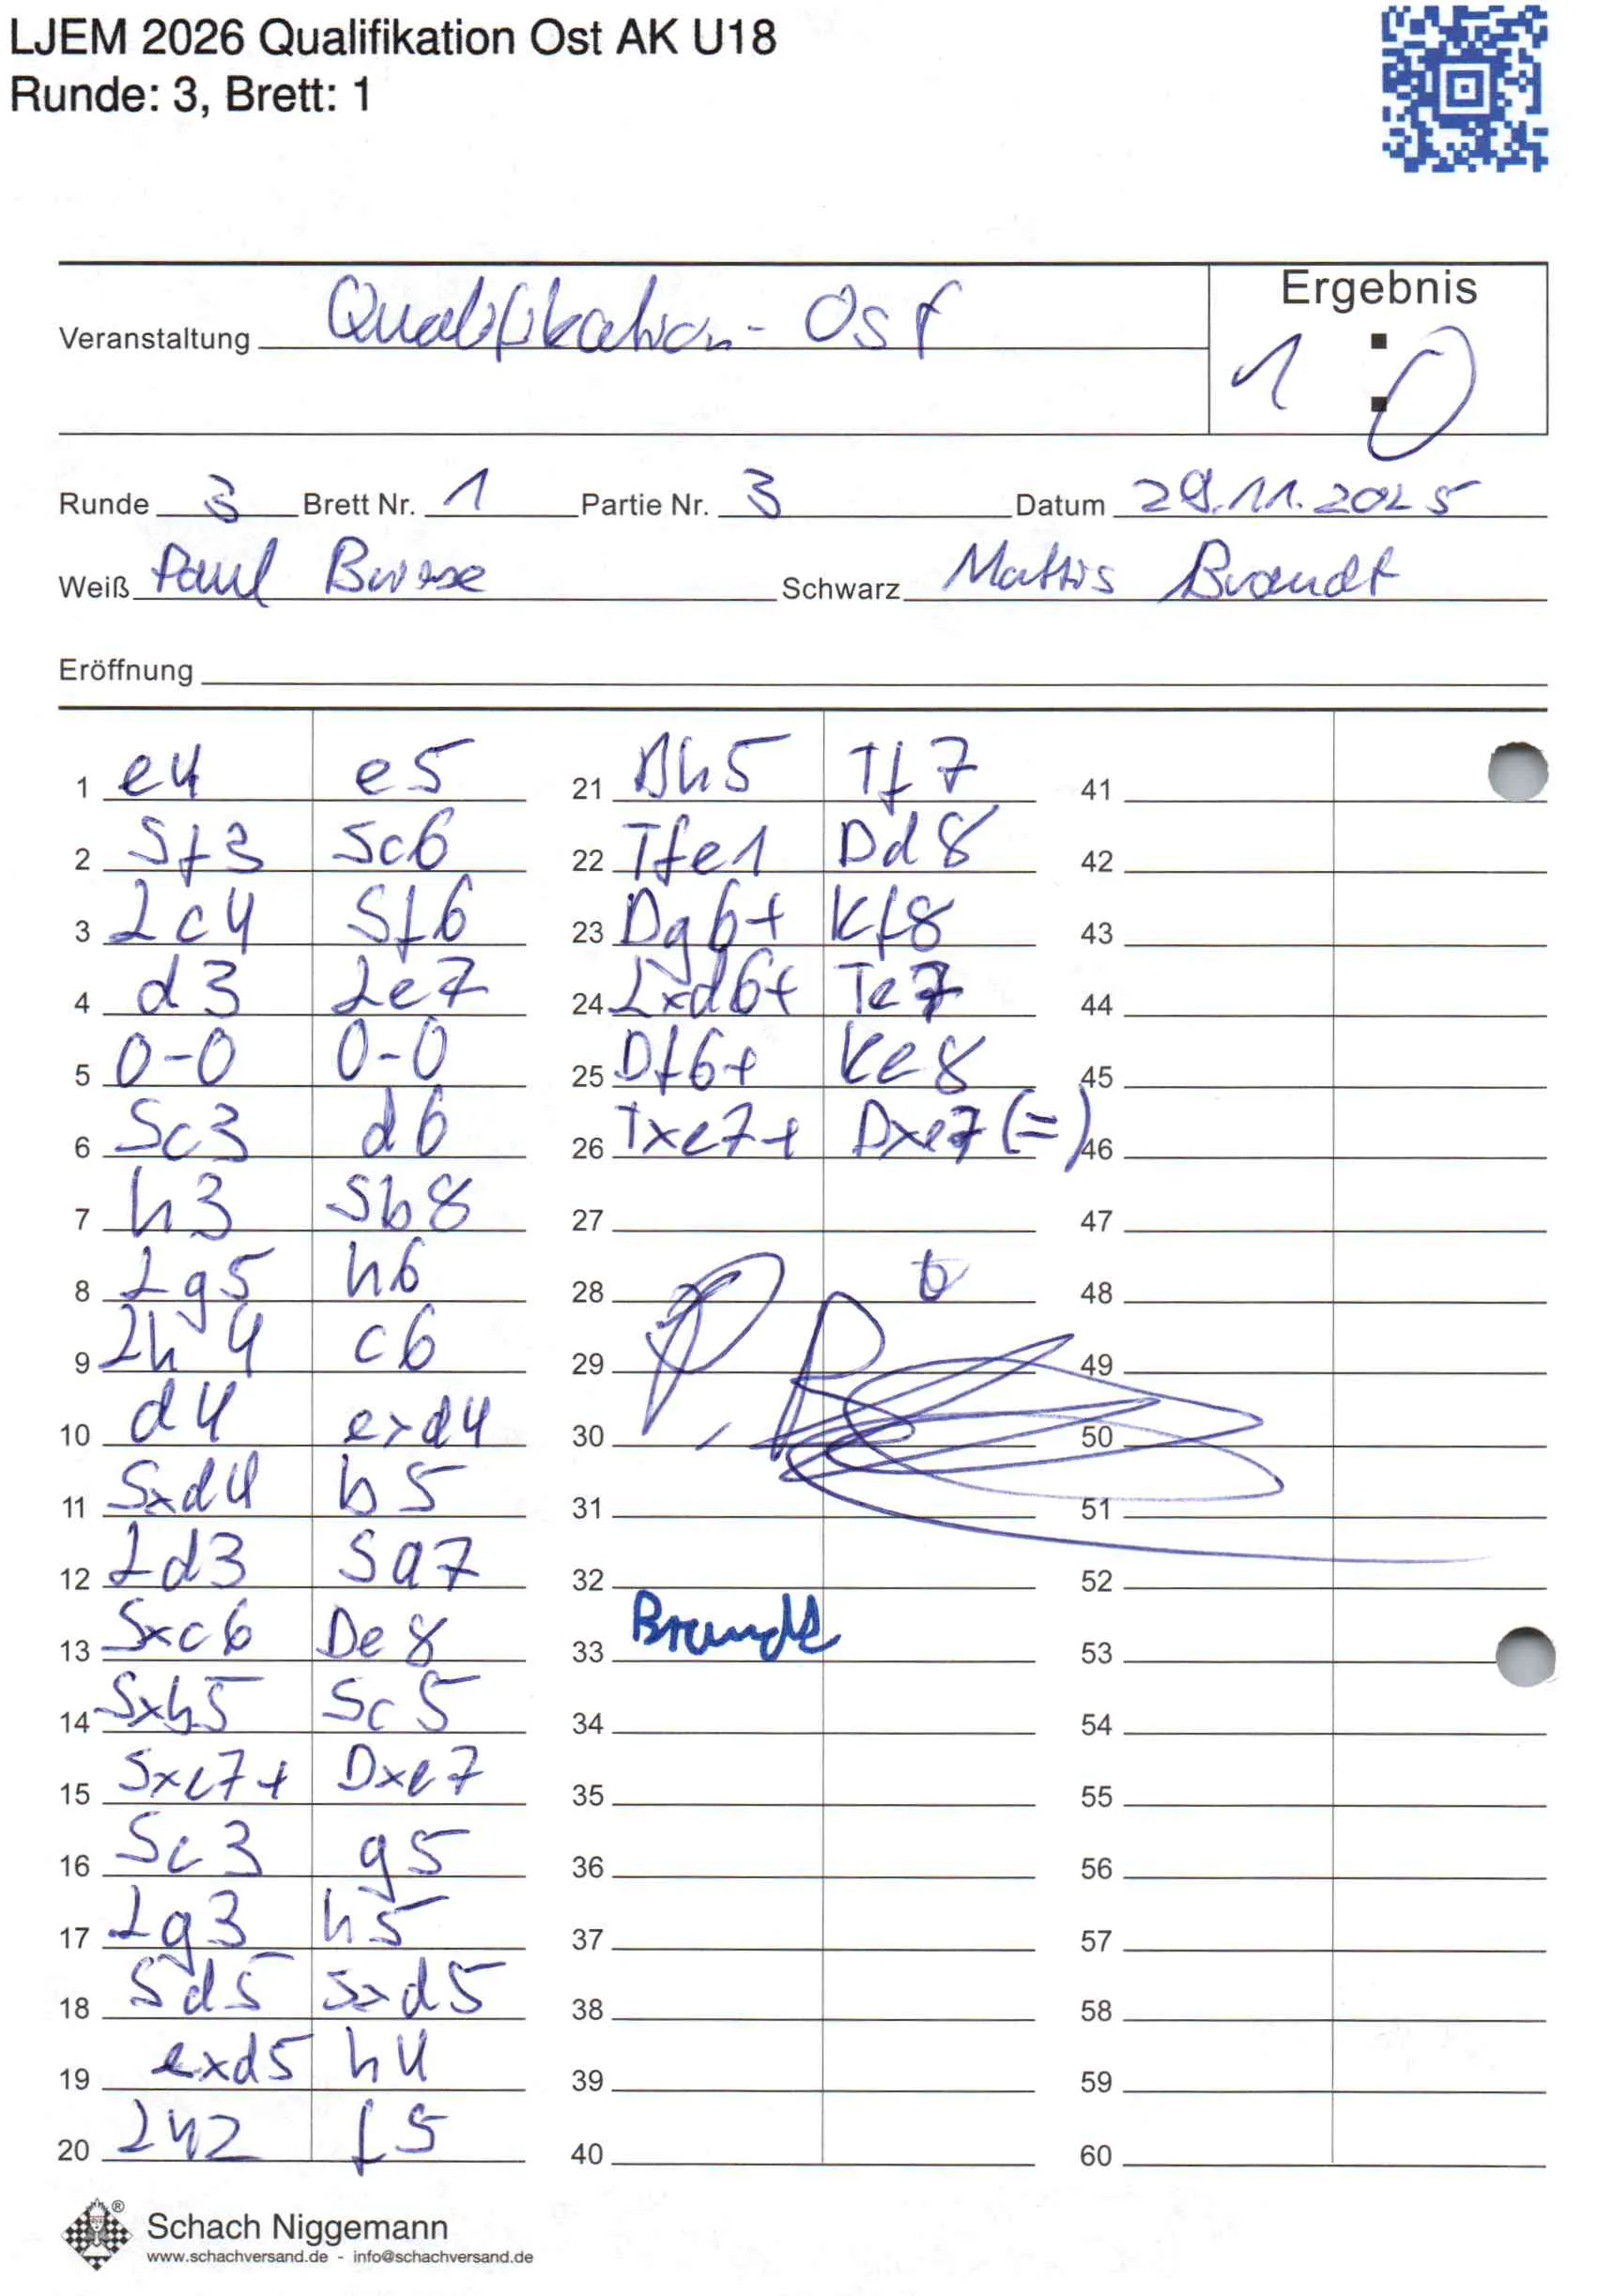 LJEM 2026 Qualifikation Ost AK U18
Runde: 3, Brett: 1
Veranstaltung Qualifikation-Ost
Ergebnis
1 : 0
Runde 3 Brett Nr. 1 Partie Nr. 3 Datum 29.11.2025
Weiß Paul Schwarz Mattis Brandt
Eröffnung
1 e4 e5
2 Sf3 Sc6
3 Lc4 Sf6
4 d3 Le7
5 0-0 0-0
6 Sc3 d6
7 h3 Sb8
8 Lg5 h6
9 Lh4 c6
10 d4 exd4
11 Sxd4 b5
12 Ld3 Sa7
13 Sxc6 De8
14 Sxb5 Sc5
15 Sxe7+ Dxe7
16 Sc3 g5
17 Lg3 h5
18 Sd5 Sxd5
19 exd5 h4
20 Lh2 f5
21 Dh5 Tf7
22 Tfe1 Dd8
23 Dg6+ Kf8
24 Lxd6+ Te7
25 Df6+ Ke8
26 Txe7+ Dxe7 (=)
27
28
29
30
31
32
33 Brandt
34
35
36
37
38
39
40
41
42
43
44
45
46
47
48
49
50
51
52
53
54
55
56
57
58
59
60
®
Schach Niggemann
www.schachversand.de - info@schachversand.de